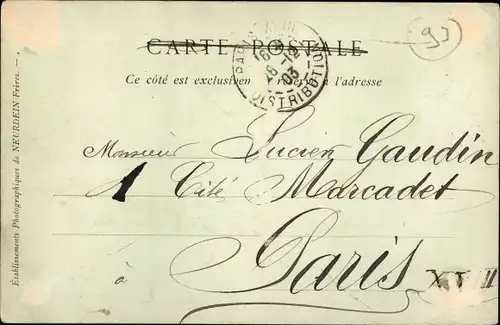 93
CARTE POSTALE
Ce côté est exclusivement réservé à l'adresse
DISTRIBUTION
Monsieur Lucien Gaudin
1 Cité Marcadet
à Paris
Établissements Photographiques de NEURDEIN Frères. —